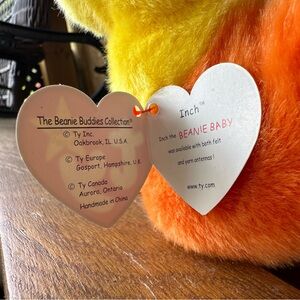 The Beanie Buddies Collection®
© Ty Inc.
Oakbrook, IL U.S.A.
© Ty Europe
Gosport, Hampshire, U.K.
© Ty Canada
Aurora, Ontario
Handmade in China
Inch™
Inch the BEANIE BABY
was available with both felt
and yarn antennas!
www.ty.com